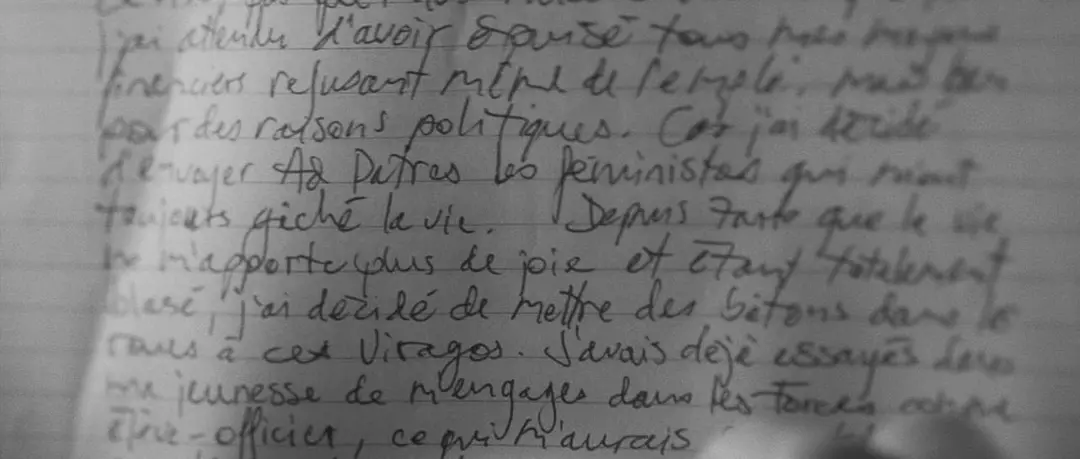 j'ai attendu d'avoir épuisé tous mes moyens
financiers refusant même de l'emploi.
pour des raisons politiques. Car j'ai décidé
d'envoyer Ad Patres les féministes qui m'ont
toujours gâché la vie. Depuis 7 ans que la vie
ne m'apporte plus de joie et étant totalement
blasé, j'ai décidé de mettre des bâtons dans les
roues à ces Viragos. J'avais déjà essayés dans
ma jeunesse de m'engager dans les Forces comme
élève-officier, ce qui m'aurais